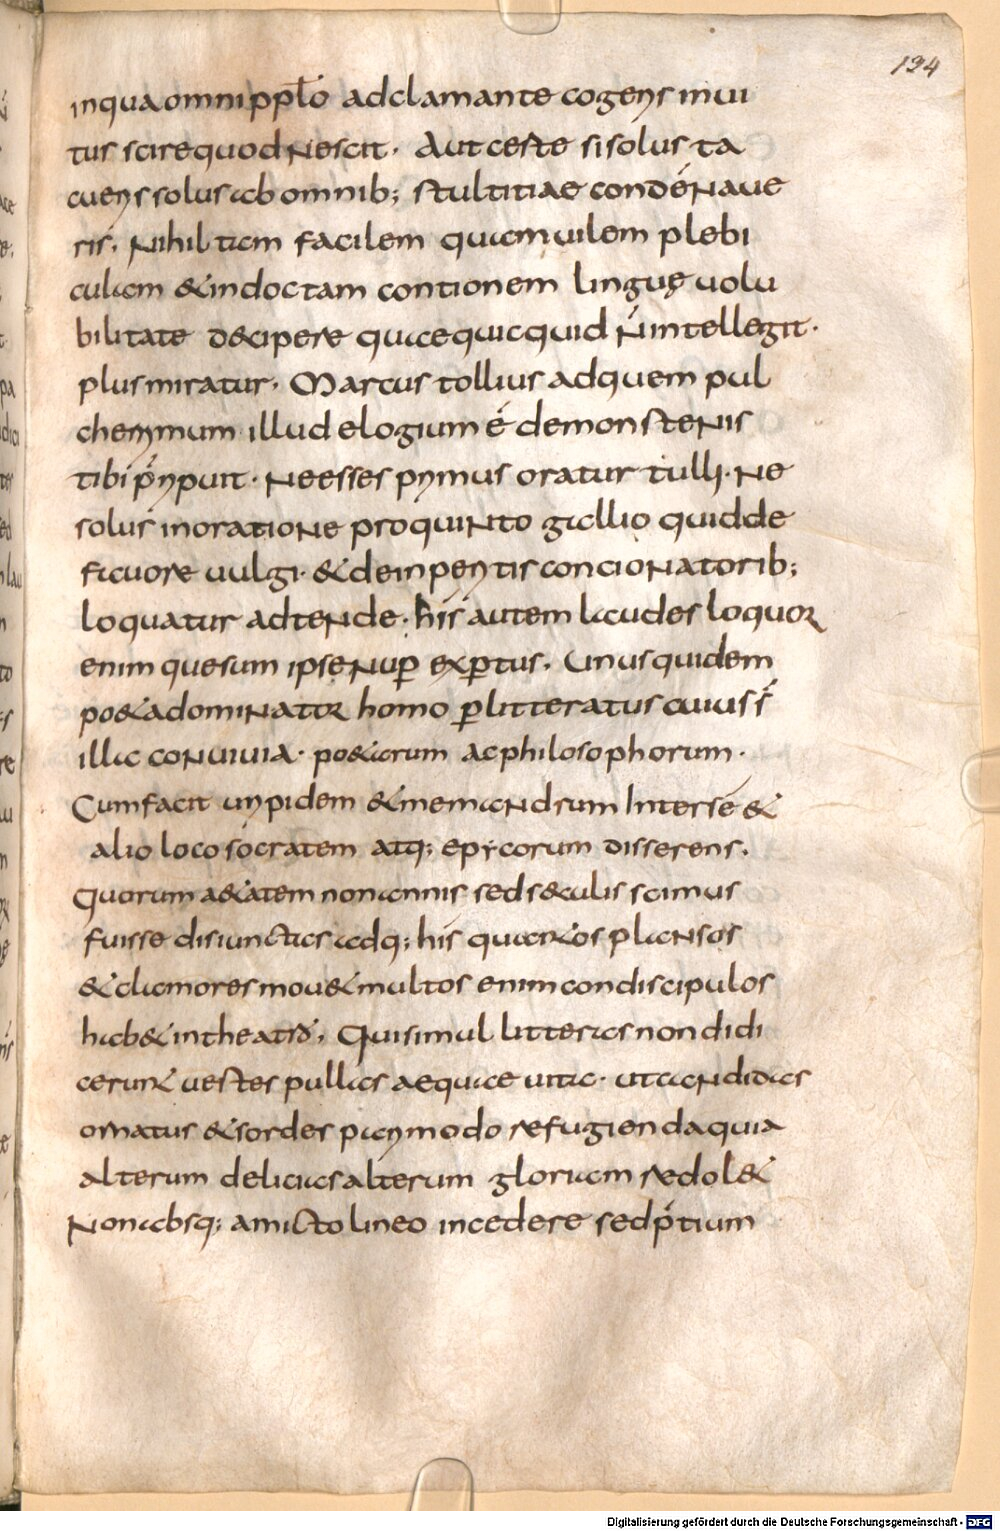 134
inqua omni pplo adclamante cogeris inui
tus scire quod nescit. Aut certe si solus ta
cueris solus ab omnib; stultitiae condénaue
ris. Nihil tam facilem quam uilem plebi
culam & indoctam contionem linguę uolu
bilitate decipere quae quicquid ñ intellegit.
plus miratur. Marcus tollius ad quem pul
cherrimum illud elogium é demonstenis
tibi p̃ripuit. Ne esses primus oratur tulli. Ne
solus in oratione pro quinto gallio quid de
fauore uulgi. & de inperitis concionatorib;
loquatur adtende. his autem laudes loquor
enim quesum ipse nuꝑ exꝑtus. Unus quidem
po&a dominator homo ꝑlitteratus cuius s̃
illac conuiuia. po&arum ac philosophorum.
Cum facit uripidem & menandrum Inter se &
alio loco socratem atq; epycorum disserens.
Quorum a&atem non annis sed s&culis scimus
fuisse disiunctas adq; his quantos plansos
& clamores mou& multos enim condiscipulos
hab& in theatro. Qui simul litteras non didi
cerunt uestes pullas aeque uita. ut candidas
ornatus & sordes pari modo refugienda quia
alterum delicias alterum gloriam redol&
Non absq; amicto lineo incedere sed p̃tium
Digitalisierung gefördert durch die Deutsche Forschungsgemeinschaft - DFG